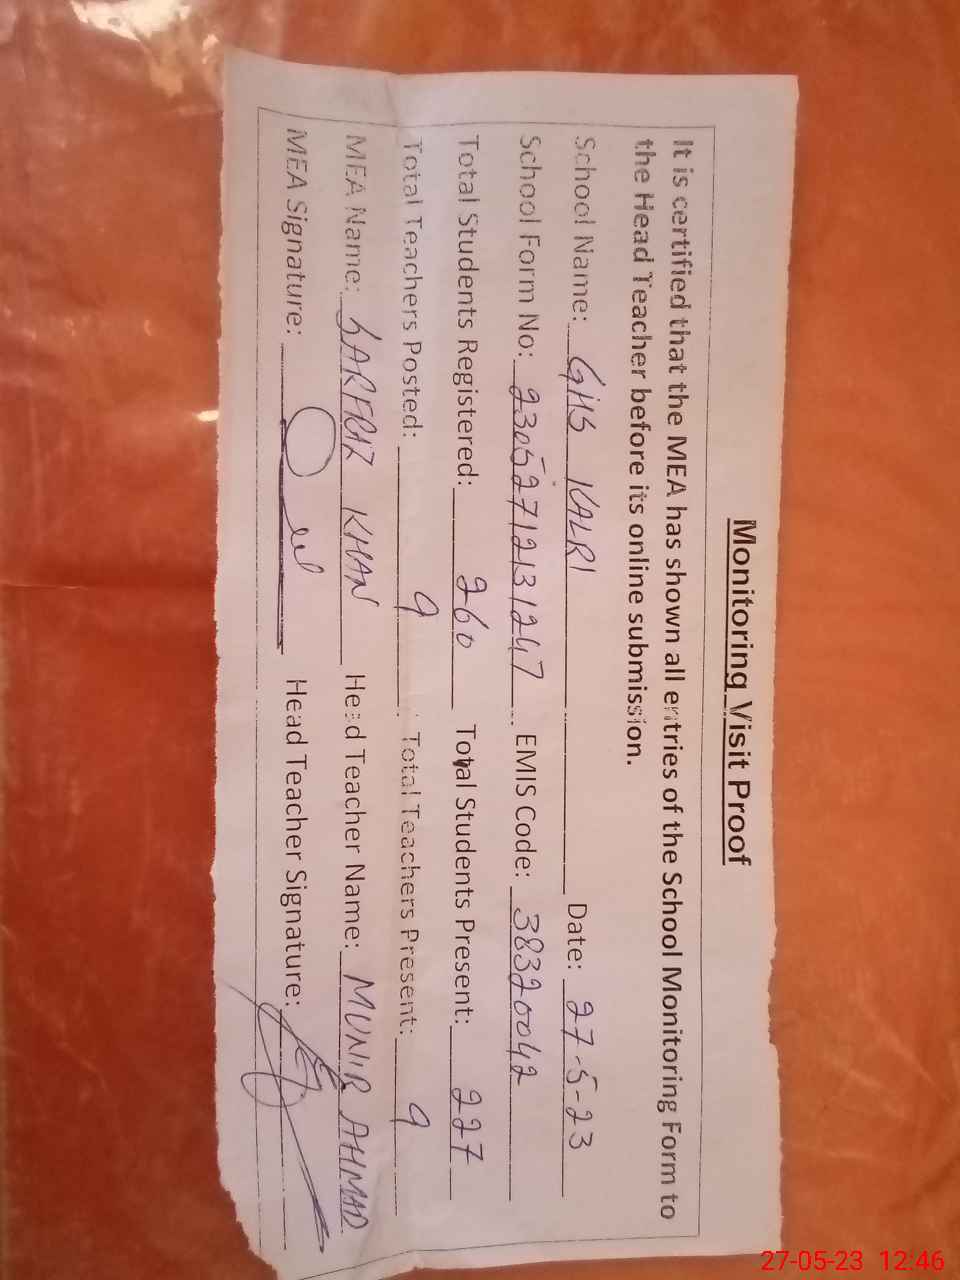 Monitoring Visit Proof
It is certified that the MEA has shown all entries of the School Monitoring Form to
the Head Teacher before its online submission.
School Name: GHS KALRI Date: 27-5-23
School Form No: 23052712131247 EMIS Code: 38320042
Total Students Registered: 260 Total Students Present: 227
Total Teachers Posted: 9 Total Teachers Present: 9
MEA Name: SARFRAZ KHAN Head Teacher Name: MUNIR AHMAD
MEA Signature: Head Teacher Signature:
27-05-23 12:46